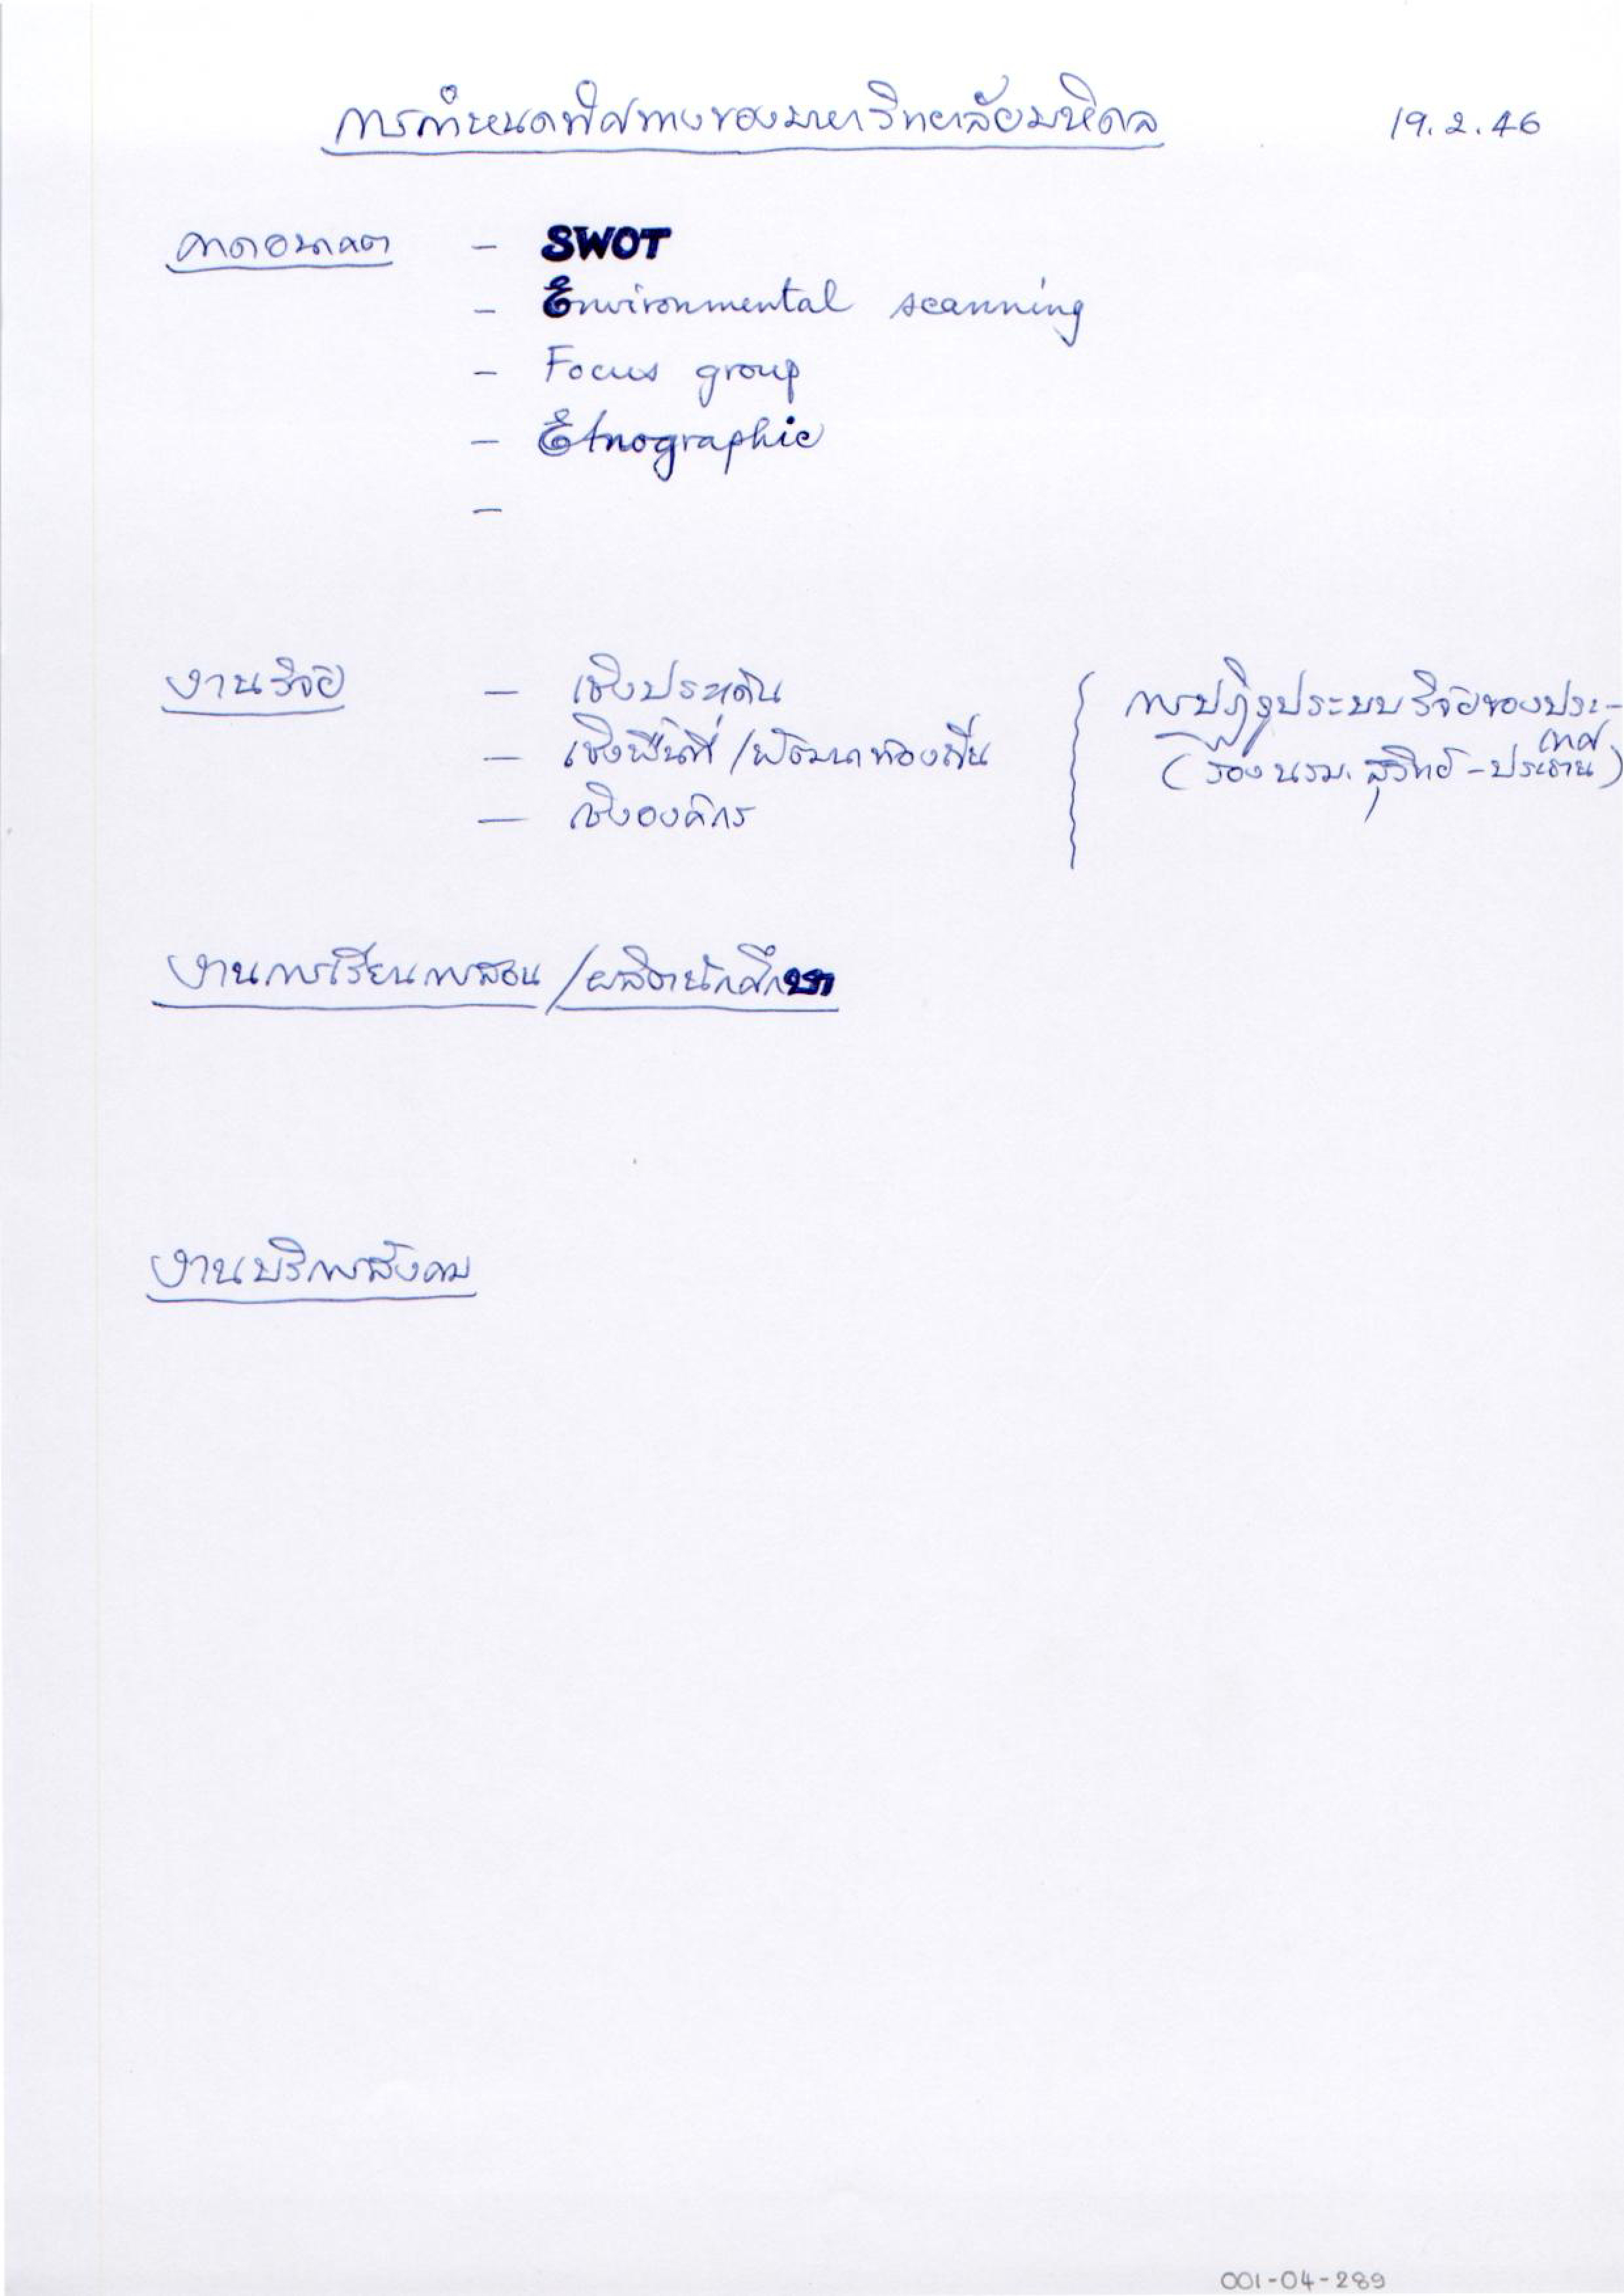 การกำหนดทิศทางของมหาวิทยาลัยมหิดล 19.2.46
คาดอนาคต - SWOT
- Environmental scanning
- Focus group
- Etnographic
-
งานวิจัย - เชิงประเด็น
- เชิงพื้นที่/พัฒนาท้องถิ่น
- เชิงองค์กร
การปฏิรูประบบวิจัยของประ-
เทศ
(รองนรม. สุวิทย์ - ประธาน)
งานการเรียนการสอน/ผลิตนักศึกษา
งานบริการสังคม
001-04-289